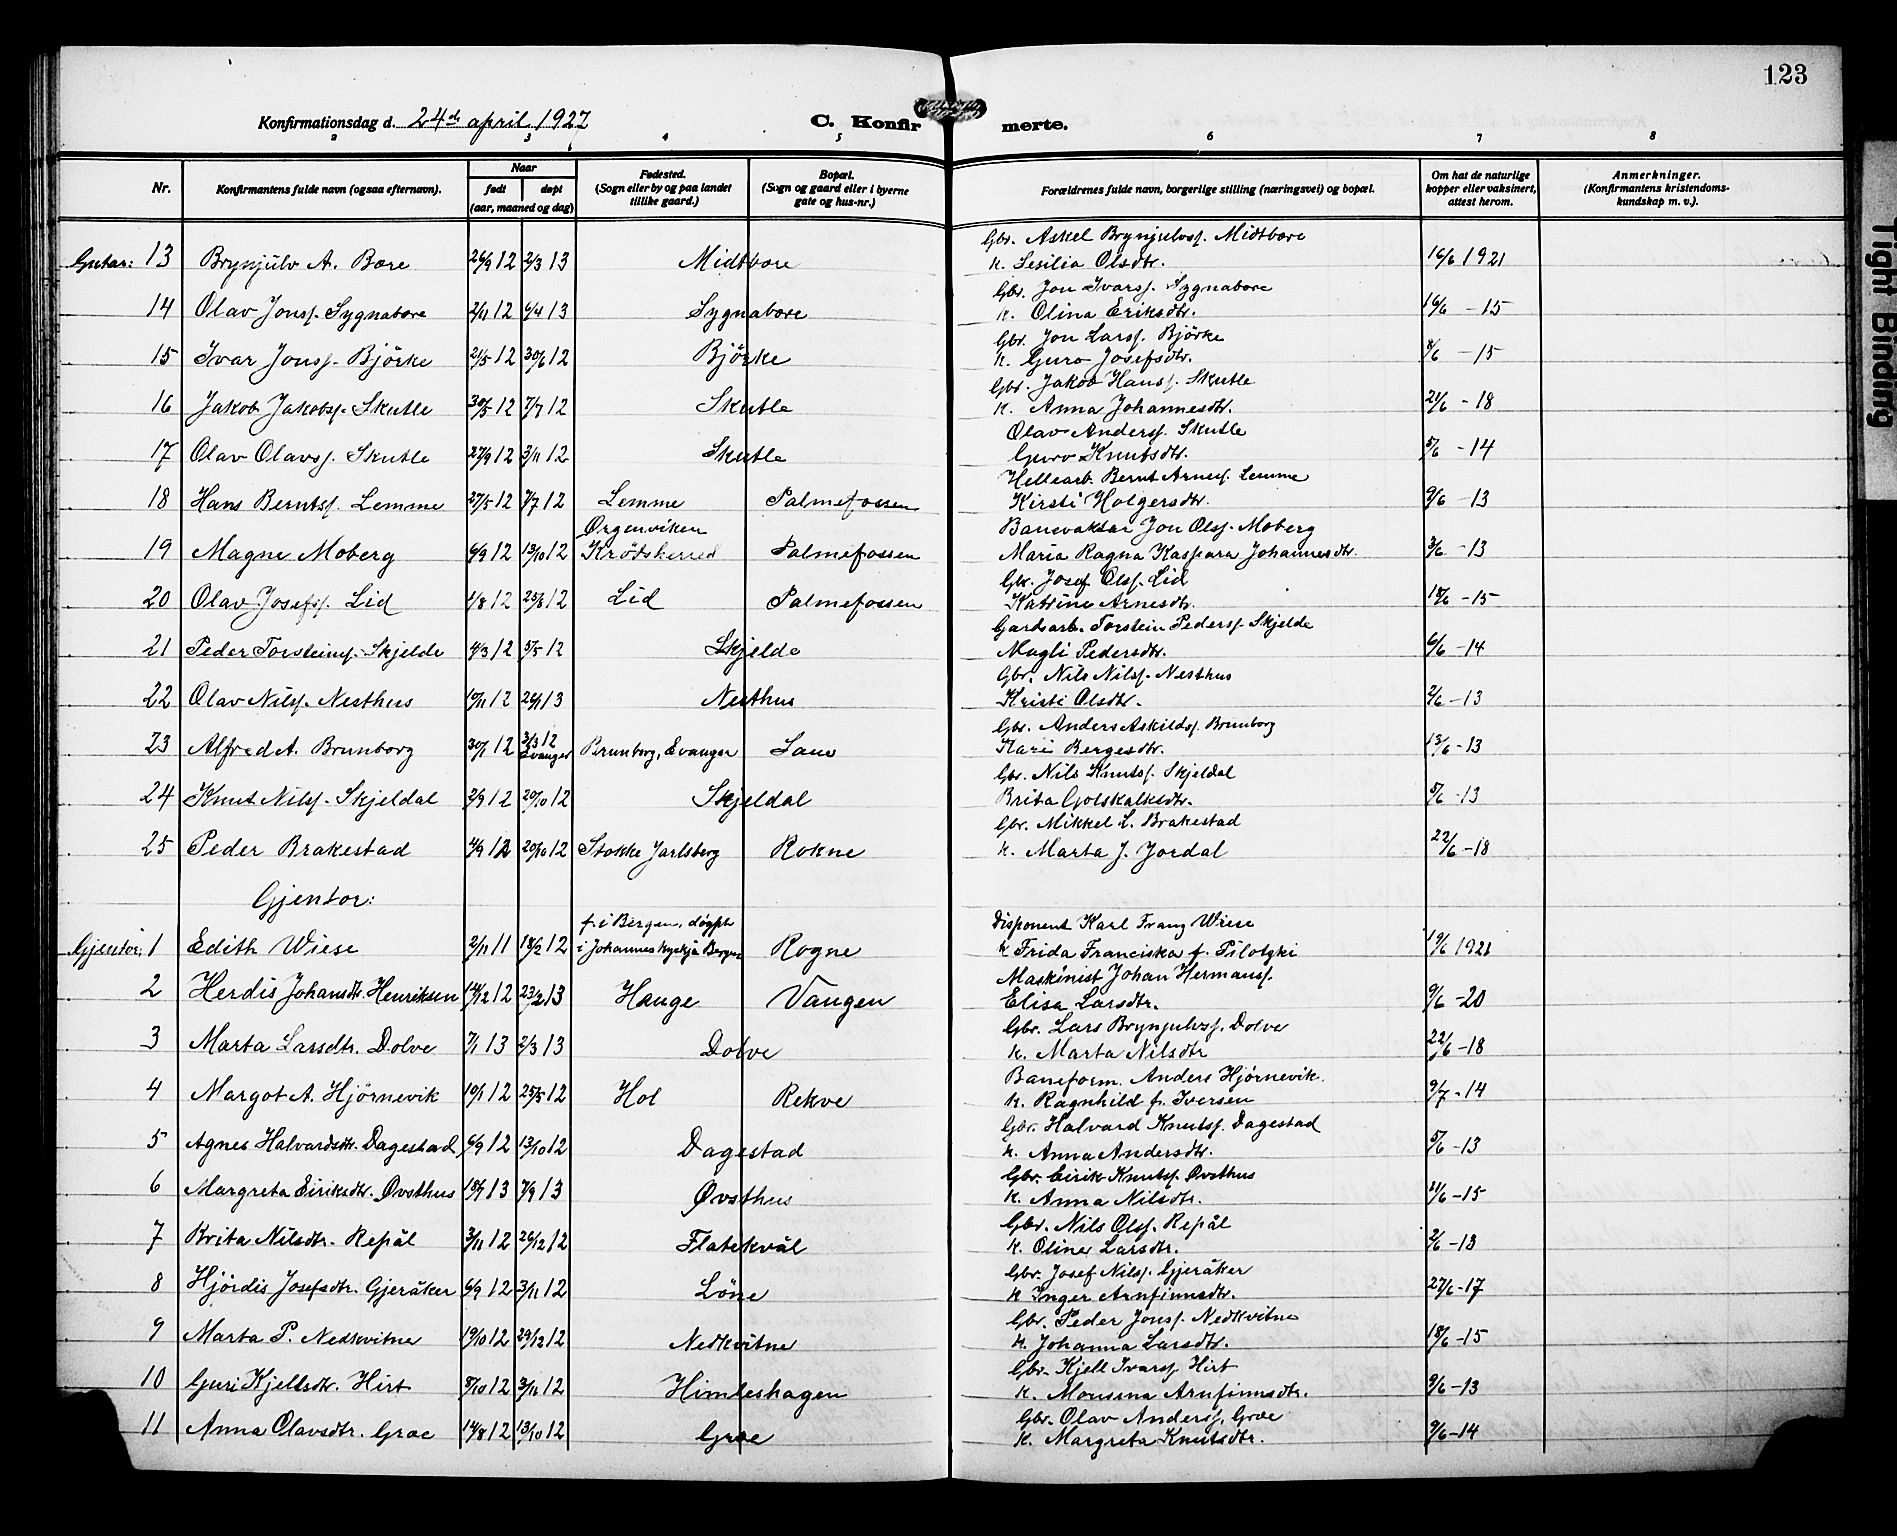 123
Konfirmationsdag d. 24de april 1927
C. Konfir merte.
2 3 4 5 6 7 8
Nr.
Konfirmantens fulde navn (ogsaa efternavn).
Naar
født døpt
(aar, maaned og dag)
Fødested.
(Sogn eller by og paa landet
tillike gaard.)
Bopæl.
(Sogn og gaard eller i byerne
gate og hus-nr.)
Forældrenes fulde navn, borgerlige stilling (næringsvei) og bopæl.
Om hat de naturlige
kopper eller vaksinert,
attest herom.
Anmerkninger.
(Konfirmantens kristendoms-
kundskap m. v.).
Gbr. Askel Brynjulvss. Midtbøre
Gutar: 13 Brynjulv A. Børe 26/9 12 2/3 13 Midtbøre k. Sesilia Olsdtr. 16/6 1921
Gbr. Jon Ivarss. Sygnabøre
14 Olav Jonss. Sygnabøre 2/11 12 6/4 13 Sygnabøre k. Olina Eriksdtr. 16/6 - 15
Gbr. Jon Larss. Björke
15 Ivar Jonss. Björke 21/5 12 30/6 12 Björke k. Guro Josefsdtr. 8/6 - 15
Gbr. Jakob Hanss. Skutle
16 Jakob Jakobss. Skutle 30/5 12 7/7 12 Skutle k. Anna Johannesdtr. 21/6 - 18
Olav Anderss. Skutle
17 Olav Olavss. Skutle 27/9 12 3/11 12 Skutle Guro Knutsdtr. 5/6 - 14
Hellearb. Bernt Arness. Lemme
18 Hans Berntss. Lemme 27/5 12 7/7 12 Lemme Palmefossen Kirsti Holgersdtr. 9/6 - 13
Ørgenviken Banevaktar Jon Olss. Moberg
19 Magne Moberg 6/9 12 13/10 12 Krödsherred Palmefossen Maria Ragna Kaspara Johannesdtr. 3/6 - 13
Gbr. Josef Olss. Lid
20 Olav Josefss. Lid 1/8 12 25/8 12 Lid Palmefossen Katrine Arnesdtr. 18/6 - 15
Gardsarb. Torstein Pederss. Skjelde
21 Peder Torsteinss. Skjelde 4/3 12 5/5 12 Skjelde Magli Pedersdtr. 6/6 - 14
Gbr. Nils Nilss. Nesthus
22 Olav Nilss. Nesthus 10/11 12 26/1 13 Nesthus Kristi Olsdtr. 2/6 - 13
Gbr. Anders Askildss. Brunborg
23 Alfred A. Brunborg 30/1 12 3/3 12 Evanger Brunborg, Evanger Saue Kari Bergesdtr. 13/6 - 13
Gbr. Nils Knutss. Skjeldal
24 Knut Nilss. Skjeldal 2/9 12 20/10 12 Skjeldal Brita Gotskalksdtr. 5/6 - 13
Gbr. Mikkel L. Brakestad
25 Peder Brakestad 4/9 12 20/10 12 Stokke Jarlsberg Rokne k. Marta J. Jordal 22/6 - 18
Gjentor:
f. i Bergen, døypt Disponent Karl Franz Wiese
Gjentor: 1 Edith Wiese 2/11 11 18/2 12 i Johanneskyrkja Bergen Rogne k Frida Franciska f. Pilotzki 19/6 1921
Maskinist Johan Hermanss.
2 Herdis Johansdtr. Henriksen 14/12 12 23/2 13 Hauge Vangen Elisa Larsdtr. 9/6 - 20
Gbr. Lars Brynjulvss. Dolve
3 Marta Larsdtr. Dolve 7/1 13 2/3 13 Dolve k. Marta Nilsdtr 22/6 - 18
Baneform. Anders Hjörnevik.
4 Margot A. Hjörnevik 10/1 12 25/5 12 Hol Rekve k. Ragnhild f. Iversen 9/7 - 14
Gbr. Halvard Knutss. Dagestad
5 Agnes Halvardsdtr. Dagestad 6/9 12 13/10 12 Dagestad k. Anna Andersdtr. 5/6 - 13
Gbr. Eirik Knutss. Øvsthus
6 Margreta Eiriksdtr. Øvsthus 18/7 13 7/9 13 Øvsthus k. Anna Nilsdtr. 21/6 - 15
Gbr. Nils Olss. Repål
7 Brita Nilsdtr. Repål 3/11 12 26/12 12 Flatekvål k. Oline Larsdtr. 2/6 - 13
Gbr. Josef Nilss. Gjeråker
8 Hjördis Josefsdtr. Gjeråker 6/9 12 3/11 12 Löne k Inger Arnfinnsdtr. 27/6 - 17
Gbr. Peder Jonss. Nedkvitne
9 Marta P. Nedkvitne 19/10 12 29/12 12 Nedkvitne k. Johanna Larsdtr. 18/6 - 15
Gbr. Kjell Ivarss. Hirt
10 Guri Kjellsdtr. Hirt 8/10 12 3/11 12 Himleshagen k. Monsina Arnfinnsdtr. 9/6 - 13
Gbr. Olav Anderss. Grøe
11 Anna Olavsdtr. Grøe 14/8 12 13/10 12 Grøe k. Margreta Knutsdtr. 9/6 - 14
Tight Binding